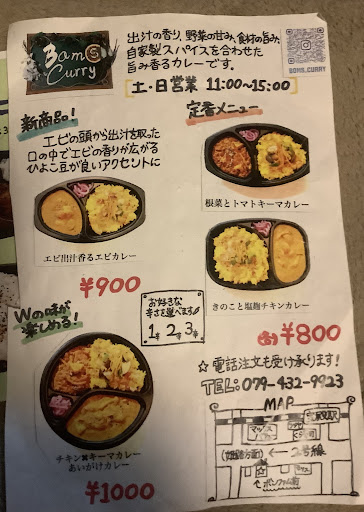 3am
Curry
出汁の香り、野菜の甘み、食材の旨み、
自家製スパイスを合わせた
旨み香るカレーです。
土・日営業 11:00〜15:00
3AM5_CURRY
新商品!
エビの頭から出汁を取った
口の中でエビの香りが広がる
ひよこ豆が良いアクセントに
エビ出汁香るエビカレー
¥900
定番メニュー
根菜とトマトキーマカレー
きのこと塩麹チキンカレー
各¥800
お好きな
辛さを選べます
1辛 2辛 3辛
Wの味が
楽しめる!
チキン✖キーマカレー
あいがけカレー
¥1000
☆電話注文も受け承ります!
TEL:079-432-9923
MAP
マックス
バリュ
(姫路方面) ← 2号線
ボンファム前